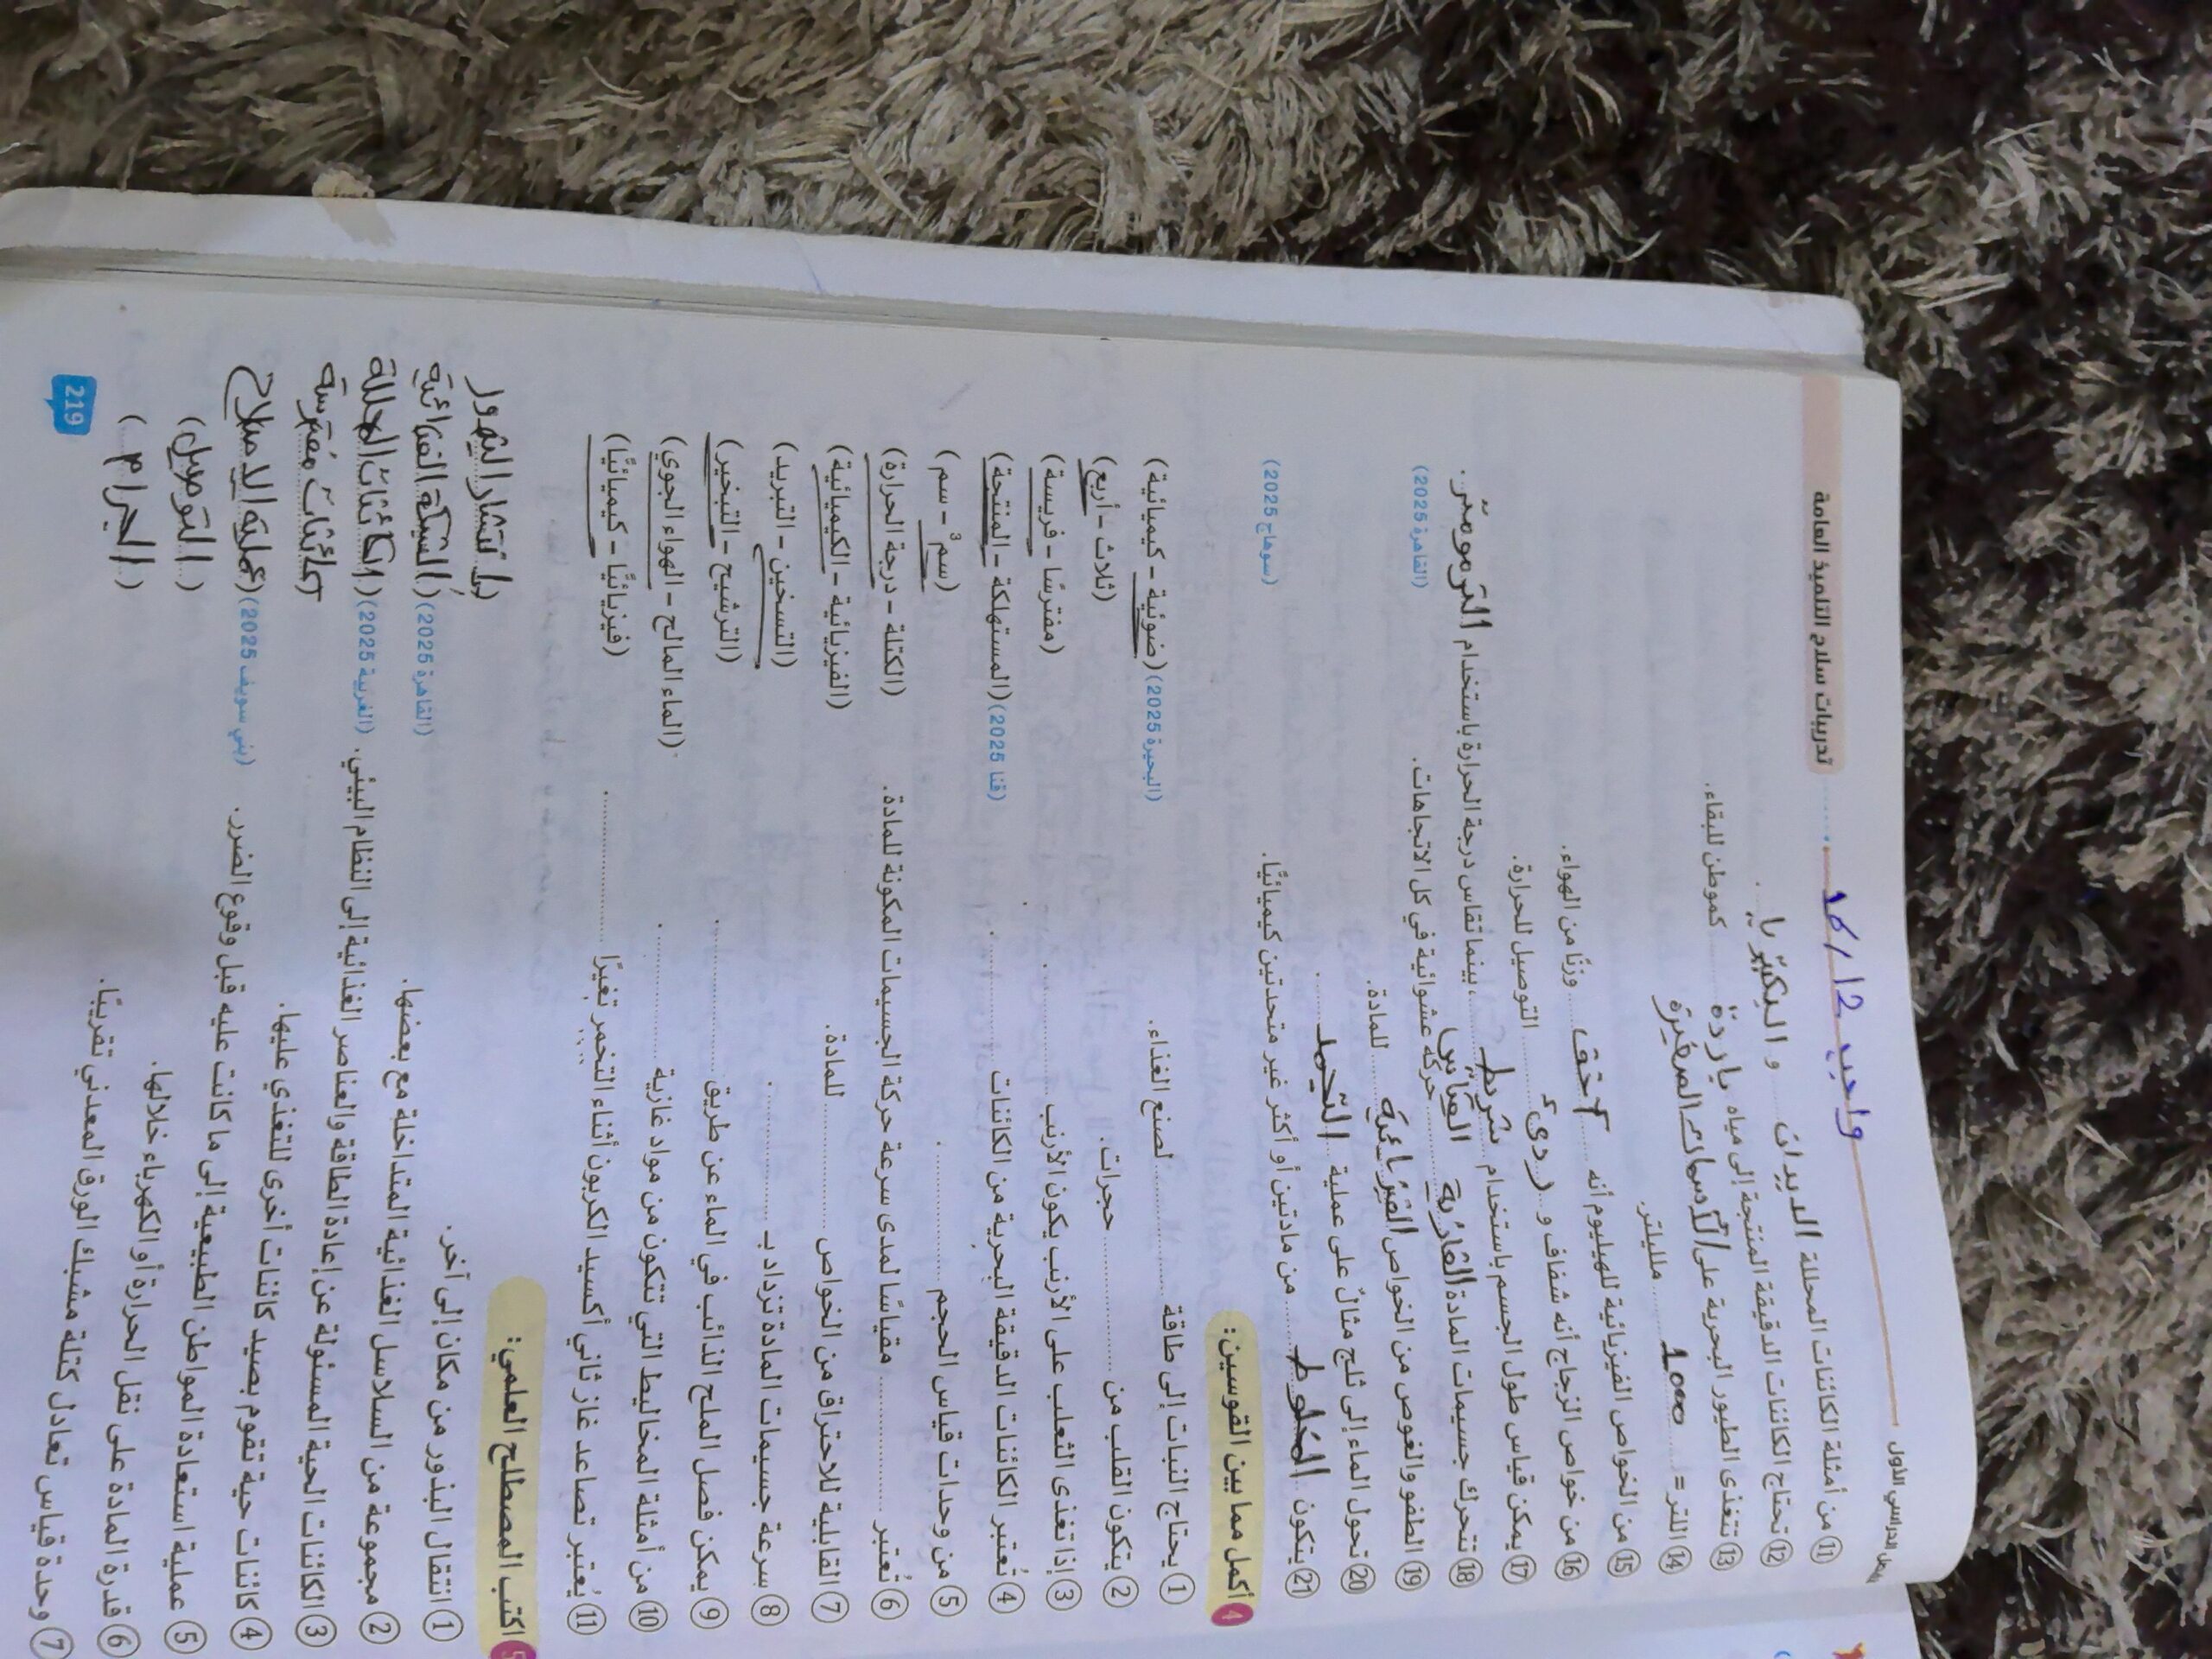 الدراسي الأول
واجب 16/12
تدريبات سلاح التلميذ العامة
11 من أمثلة الكائنات المحللة الديدان و البكتيريا.
12 تحتاج الكائنات الدقيقة المنتجة إلى مياه باردة كموطن للبقاء.
13 تتغذى الطيور البحرية على الأسماك الصغيرة
14 اللتر = 1000 ملليلتر.
15 من الخواص الفيزيائية للهيليوم أنه أخف وزنًا من الهواء.
16 من خواص الزجاج أنه شفاف و ردئ التوصيل للحرارة.
17 يمكن قياس طول الجسم باستخدام شريط القياس، بينما تقاس درجة الحرارة باستخدام الترمومتر.
18 تتحرك جسيمات المادة الغازية حركة عشوائية في كل الاتجاهات. (القاهرة 2025)
19 الطفو والغوص من الخواص الفيزيائية للمادة.
20 تحول الماء إلى ثلج مثالٌ على عملية التجمد.
21 يتكون المخلوط من مادتين أو أكثر غير متحدتين كيميائيًا. (سوهاج 2025)
4 أكمل مما بين القوسين:
1 يحتاج النبات إلى طاقة ........ لصنع الغذاء. (البحيرة 2025) (ضوئية - كيميائية)
2 يتكون القلب من ........ حجرات. (ثلاث - أربع)
3 إذا تغذى الثعلب على الأرنب يكون الأرنب ........ . (مفترسًا - فريسة)
4 تُعتبر الكائنات الدقيقة البحرية من الكائنات ........ . (قنا 2025) (المستهلكة - المنتجة)
5 من وحدات قياس الحجم ........ . (سم³ - سم)
6 تُعتبر ........ مقياسًا لمدى سرعة حركة الجسيمات المكونة للمادة. (الكتلة - درجة الحرارة)
7 القابلية للاحتراق من الخواص ........ للمادة. (الفيزيائية - الكيميائية)
8 سرعة جسيمات المادة تزداد بـ ........ . (التسخين - التبريد)
9 يمكن فصل الملح الذائب في الماء عن طريق ........ . (الترشيح - التبخير)
10 من أمثلة المخاليط التي تتكون من مواد غازية ........ . (الماء المالح - الهواء الجوي)
11 يُعتبر تصاعد غاز ثاني أكسيد الكربون أثناء التخمر تغيرًا ........ . (فيزيائيًا - كيميائيًا)
5 اكتب المصطلح العلمي:
1 انتقال البذور من مكان إلى آخر. (انتشار البذور)
2 مجموعة من السلاسل الغذائية المتداخلة مع بعضها. (القاهرة 2025) (الشبكة الغذائية)
3 الكائنات الحية المسئولة عن إعادة الطاقة والعناصر الغذائية إلى النظام البيئي. (الغربية 2025) (الكائنات المحللة)
4 كائنات حية تقوم بصيد كائنات أخرى للتغذي عليها. كائنات مفترسة
5 عملية استعادة المواطن الطبيعية إلى ما كانت عليه قبل وقوع الضرر. (بني سويف 2025) (عملية الاصلاح
6 قدرة المادة على نقل الحرارة أو الكهرباء خلالها. (التوصيل)
7 وحدة قياس تعادل كتلة مشبك الورق المعدني تقريبًا. (الجرام)
219